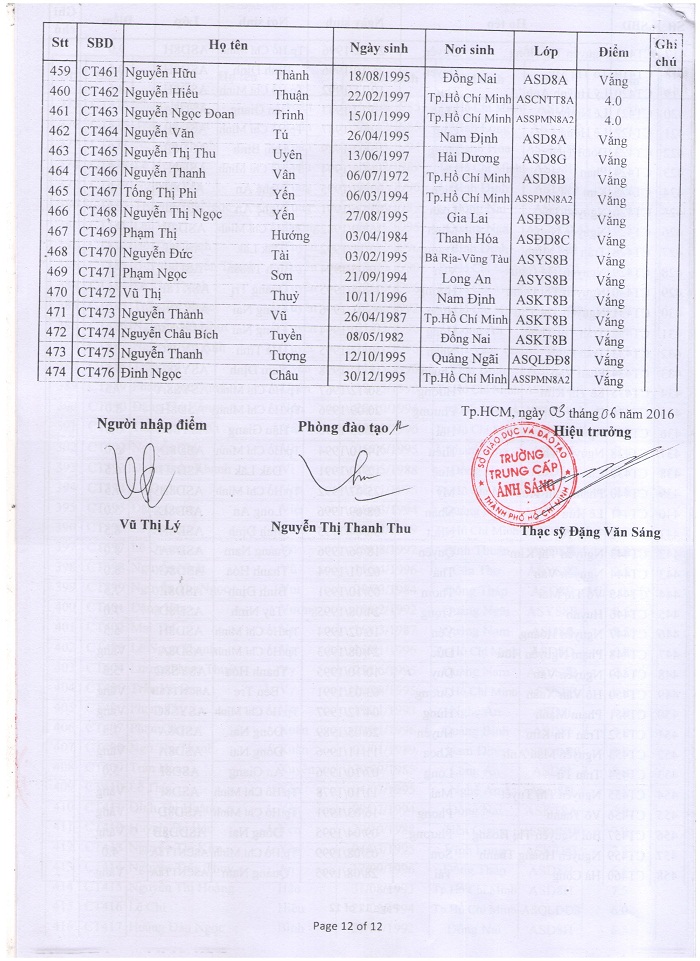 Stt SBD Họ tên Ngày sinh Nơi sinh Lớp Điểm Ghi chú
459 CT461 Nguyễn Hữu Thành 18/08/1995 Đồng Nai ASD8A Vắng
460 CT462 Nguyễn Hiếu Thuận 22/02/1997 Tp.Hồ Chí Minh ASCNTT8A 4.0
461 CT463 Nguyễn Ngọc Đoan Trinh 15/01/1999 Tp.Hồ Chí Minh ASSPMN8A2 4.0
462 CT464 Nguyễn Văn Tú 26/04/1995 Nam Định ASD8A Vắng
463 CT465 Nguyễn Thị Thu Uyên 13/06/1997 Hải Dương ASD8G Vắng
464 CT466 Nguyễn Thanh Vân 06/07/1972 Tp.Hồ Chí Minh ASD8B Vắng
465 CT467 Tống Thị Phi Yến 06/03/1994 Tp.Hồ Chí Minh ASSPMN8A2 Vắng
466 CT468 Nguyễn Thị Ngọc Yến 27/08/1995 Gia Lai ASĐD8B Vắng
467 CT469 Phạm Thị Hướng 03/04/1984 Thanh Hóa ASĐD8C Vắng
468 CT470 Nguyễn Đức Tài 03/02/1995 Bà Rịa-Vũng Tàu ASYS8B Vắng
469 CT471 Phạm Ngọc Sơn 21/09/1994 Long An ASYS8B Vắng
470 CT472 Vũ Thị Thuỷ 10/11/1996 Nam Định ASKT8B Vắng
471 CT473 Nguyễn Thành Vũ 26/04/1987 Tp.Hồ Chí Minh ASKT8B Vắng
472 CT474 Nguyễn Châu Bích Tuyền 08/05/1982 Đồng Nai ASKT8B Vắng
473 CT475 Nguyễn Thanh Tượng 12/10/1995 Quảng Ngãi ASQLĐĐ8 Vắng
474 CT476 Đinh Ngọc Châu 30/12/1995 Tp.Hồ Chí Minh ASSPMN8A2 Vắng
Tp.HCM, ngày 03 tháng 06 năm 2016
Người nhập điểm Phòng đào tạo Hiệu trưởng
SỞ GIÁO DỤC VÀ ĐÀO TẠO
TRƯỜNG
TRUNG CẤP
ÁNH SÁNG
THÀNH PHỐ HỒ CHÍ MINH
Vũ Thị Lý Nguyễn Thị Thanh Thu Thạc sỹ Đặng Văn Sáng
Page 12 of 12